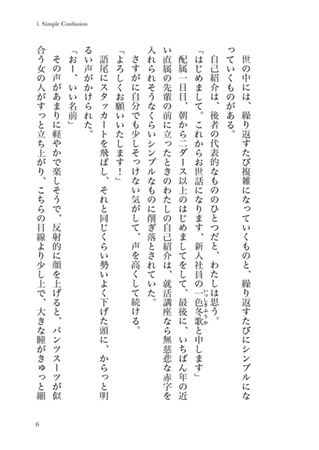 1. Simple Confusion
世の中には、繰り返すたび複雑になっていくものと、繰り返すたびにシンプルにな
っていくものがある。
自己紹介は、後者の代表的なもののひとつだと、わたしは思う。
「はじめまして。これからお世話になります、新入社員の一色冬歌と申します」
いっしきふうか
配属一日目、朝から二ダース以上のはじめましてをして、最後に、いちばん年の近
い直属の先輩の前に立ったときのわたしの自己紹介は、就活講座なら無慈悲な赤字を
入れられそうなくらいシンプルなものに削ぎ落とされていた。
さすがに自分でも少しそっけない気がして、声を高くして続ける。
「よろしくお願いいたします！」
語尾にスタッカートを飛ばし、それと同じくらい勢いよく下げた頭に、からっと明
るい声がかけられた。
「おー、いい名前」
その声があまりに軽やかで楽しそうで、反射的に顔を上げると、パンツスーツが似
合う女の人がすっと立ち上がり、こちらの目線より少し上で、大きな瞳がきゅっと細
6